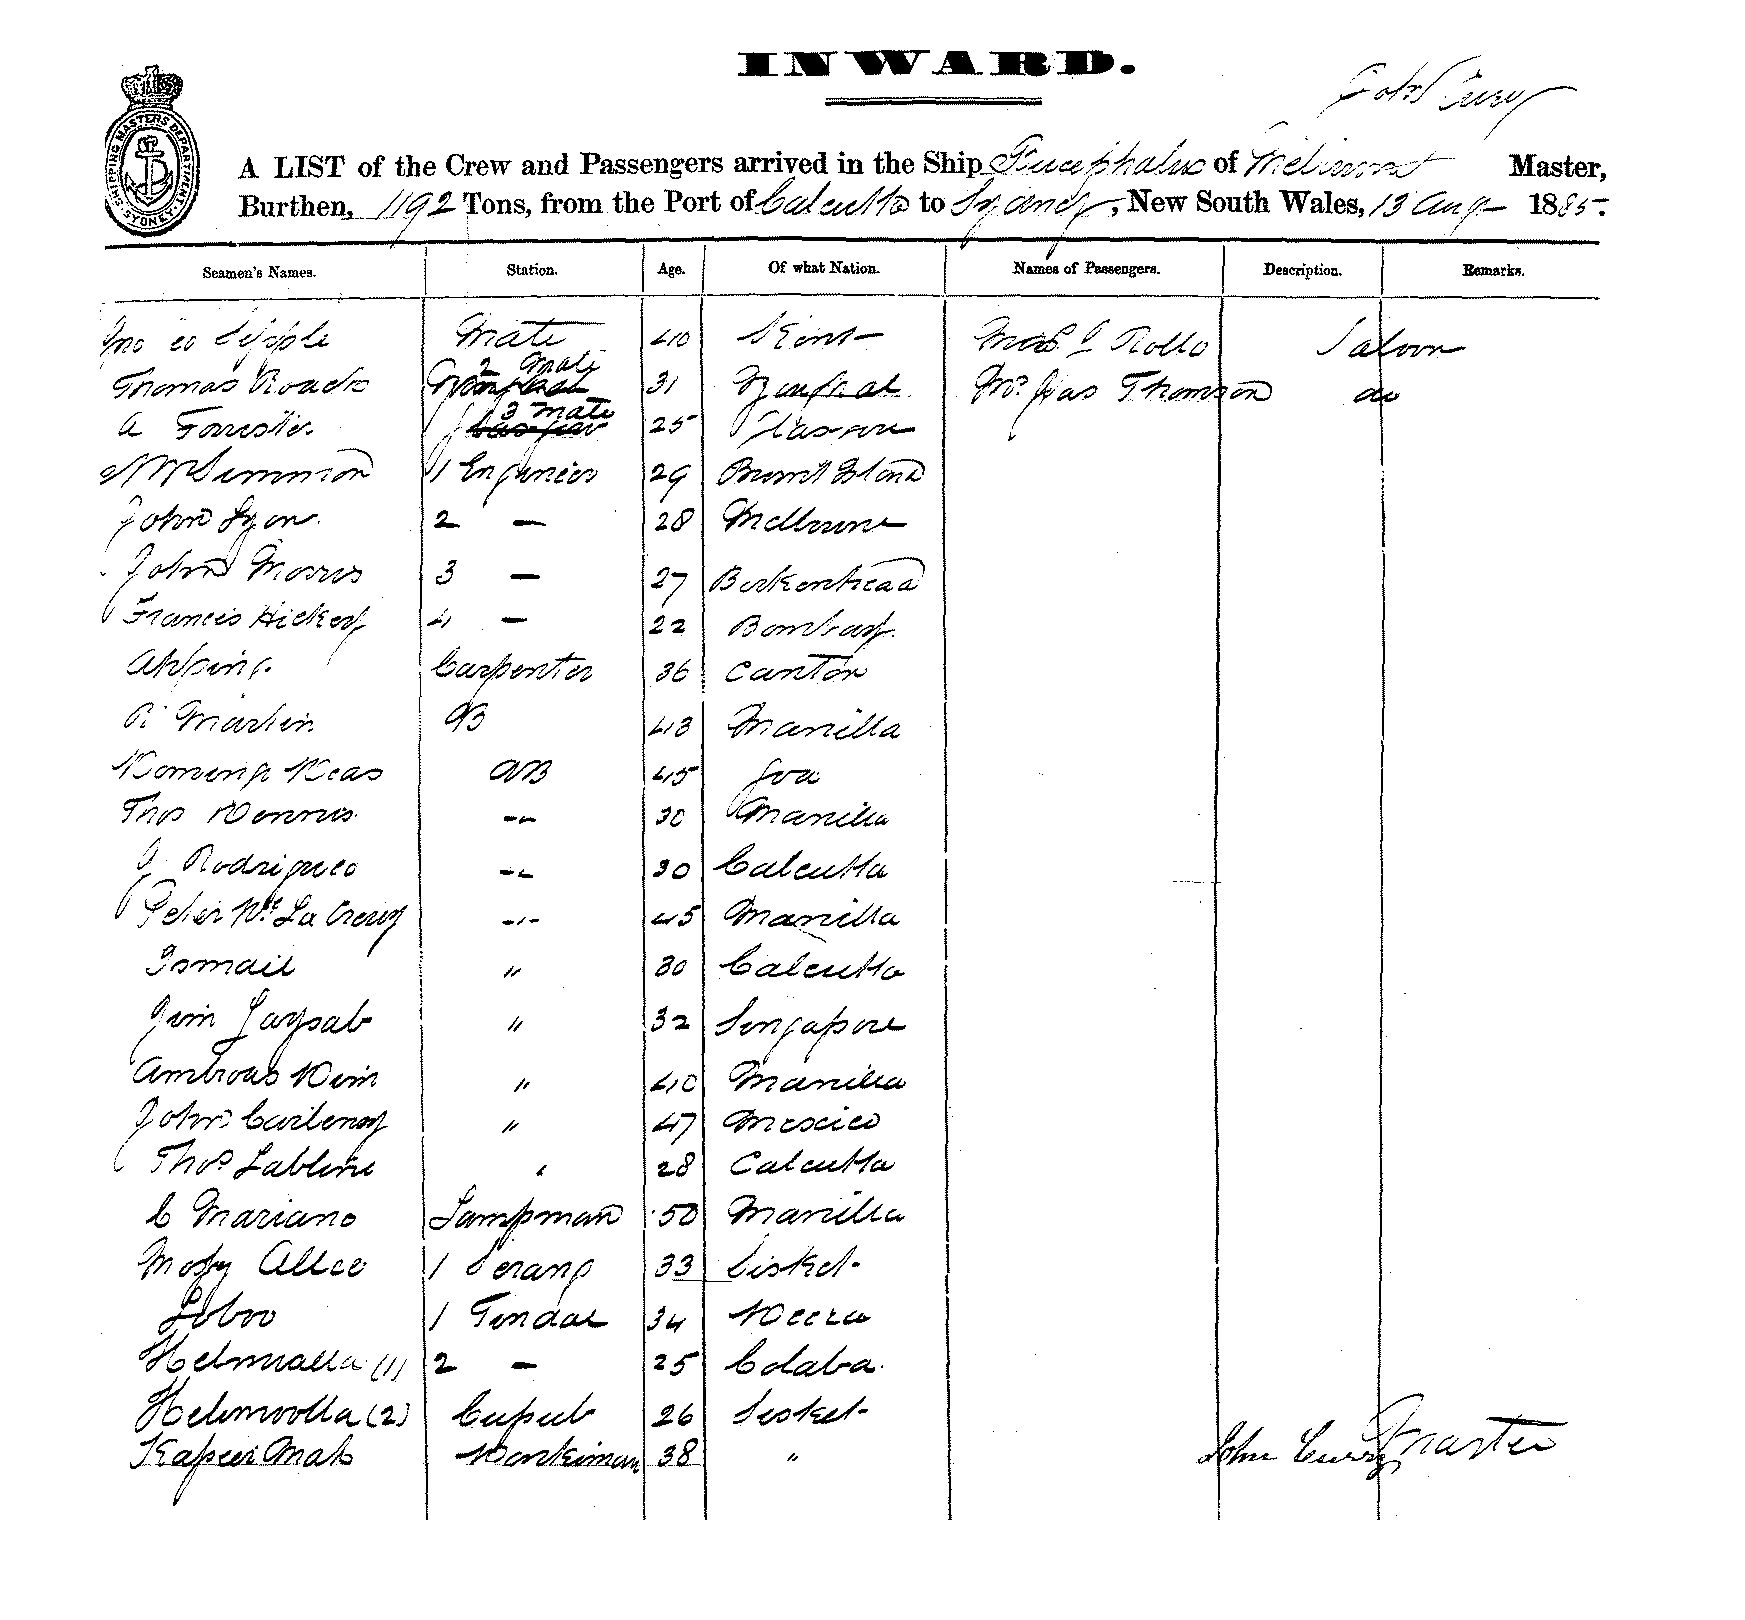 INWARD.
John Curry
SHIPPING MASTERS DEPARTMENT SYDNEY
A LIST of the Crew and Passengers arrived in the Ship Bucephalus of Melbourne Master,
Burthen, 1192 Tons, from the Port of Calcutta to Sydney, New South Wales, 13 Aug 1885.
Seamen's Names. Station. Age. Of what Nation. Names of Passengers. Description. Remarks.
Jno Sipple Mate 40 Kent Rollo Saloon
Thomas Roach 2 Mate 31 Mr Jas Thomson do
A Forrester 3 Mate 25 Glasgow
1 Engineer 29 Island
John Lyon 2 — 28 Melbourne
John Morris 3 — 27 Birkenhead
Francis Hickey 4 — 22 Bombay
Ahping Carpenter 36 Canton
R Martin AB 43 Manilla
Keas AB 45 Goa
Thos Dennis -- 30 Manilla
J Rodrigues -- 30 Calcutta
Peter La -- 45 Manilla
Ismail " 30 Calcutta
Jim " 32 Singapore
" 40 Manilla
John " 47 Mexico
Thos " 28 Calcutta
C Mariano Lampman 50 Manilla
Allee 1 Serang 33
1 Tindal 34
(1) 2 — 25 Colaba
Helimoolla (2) 26
38 "
John Curry Master